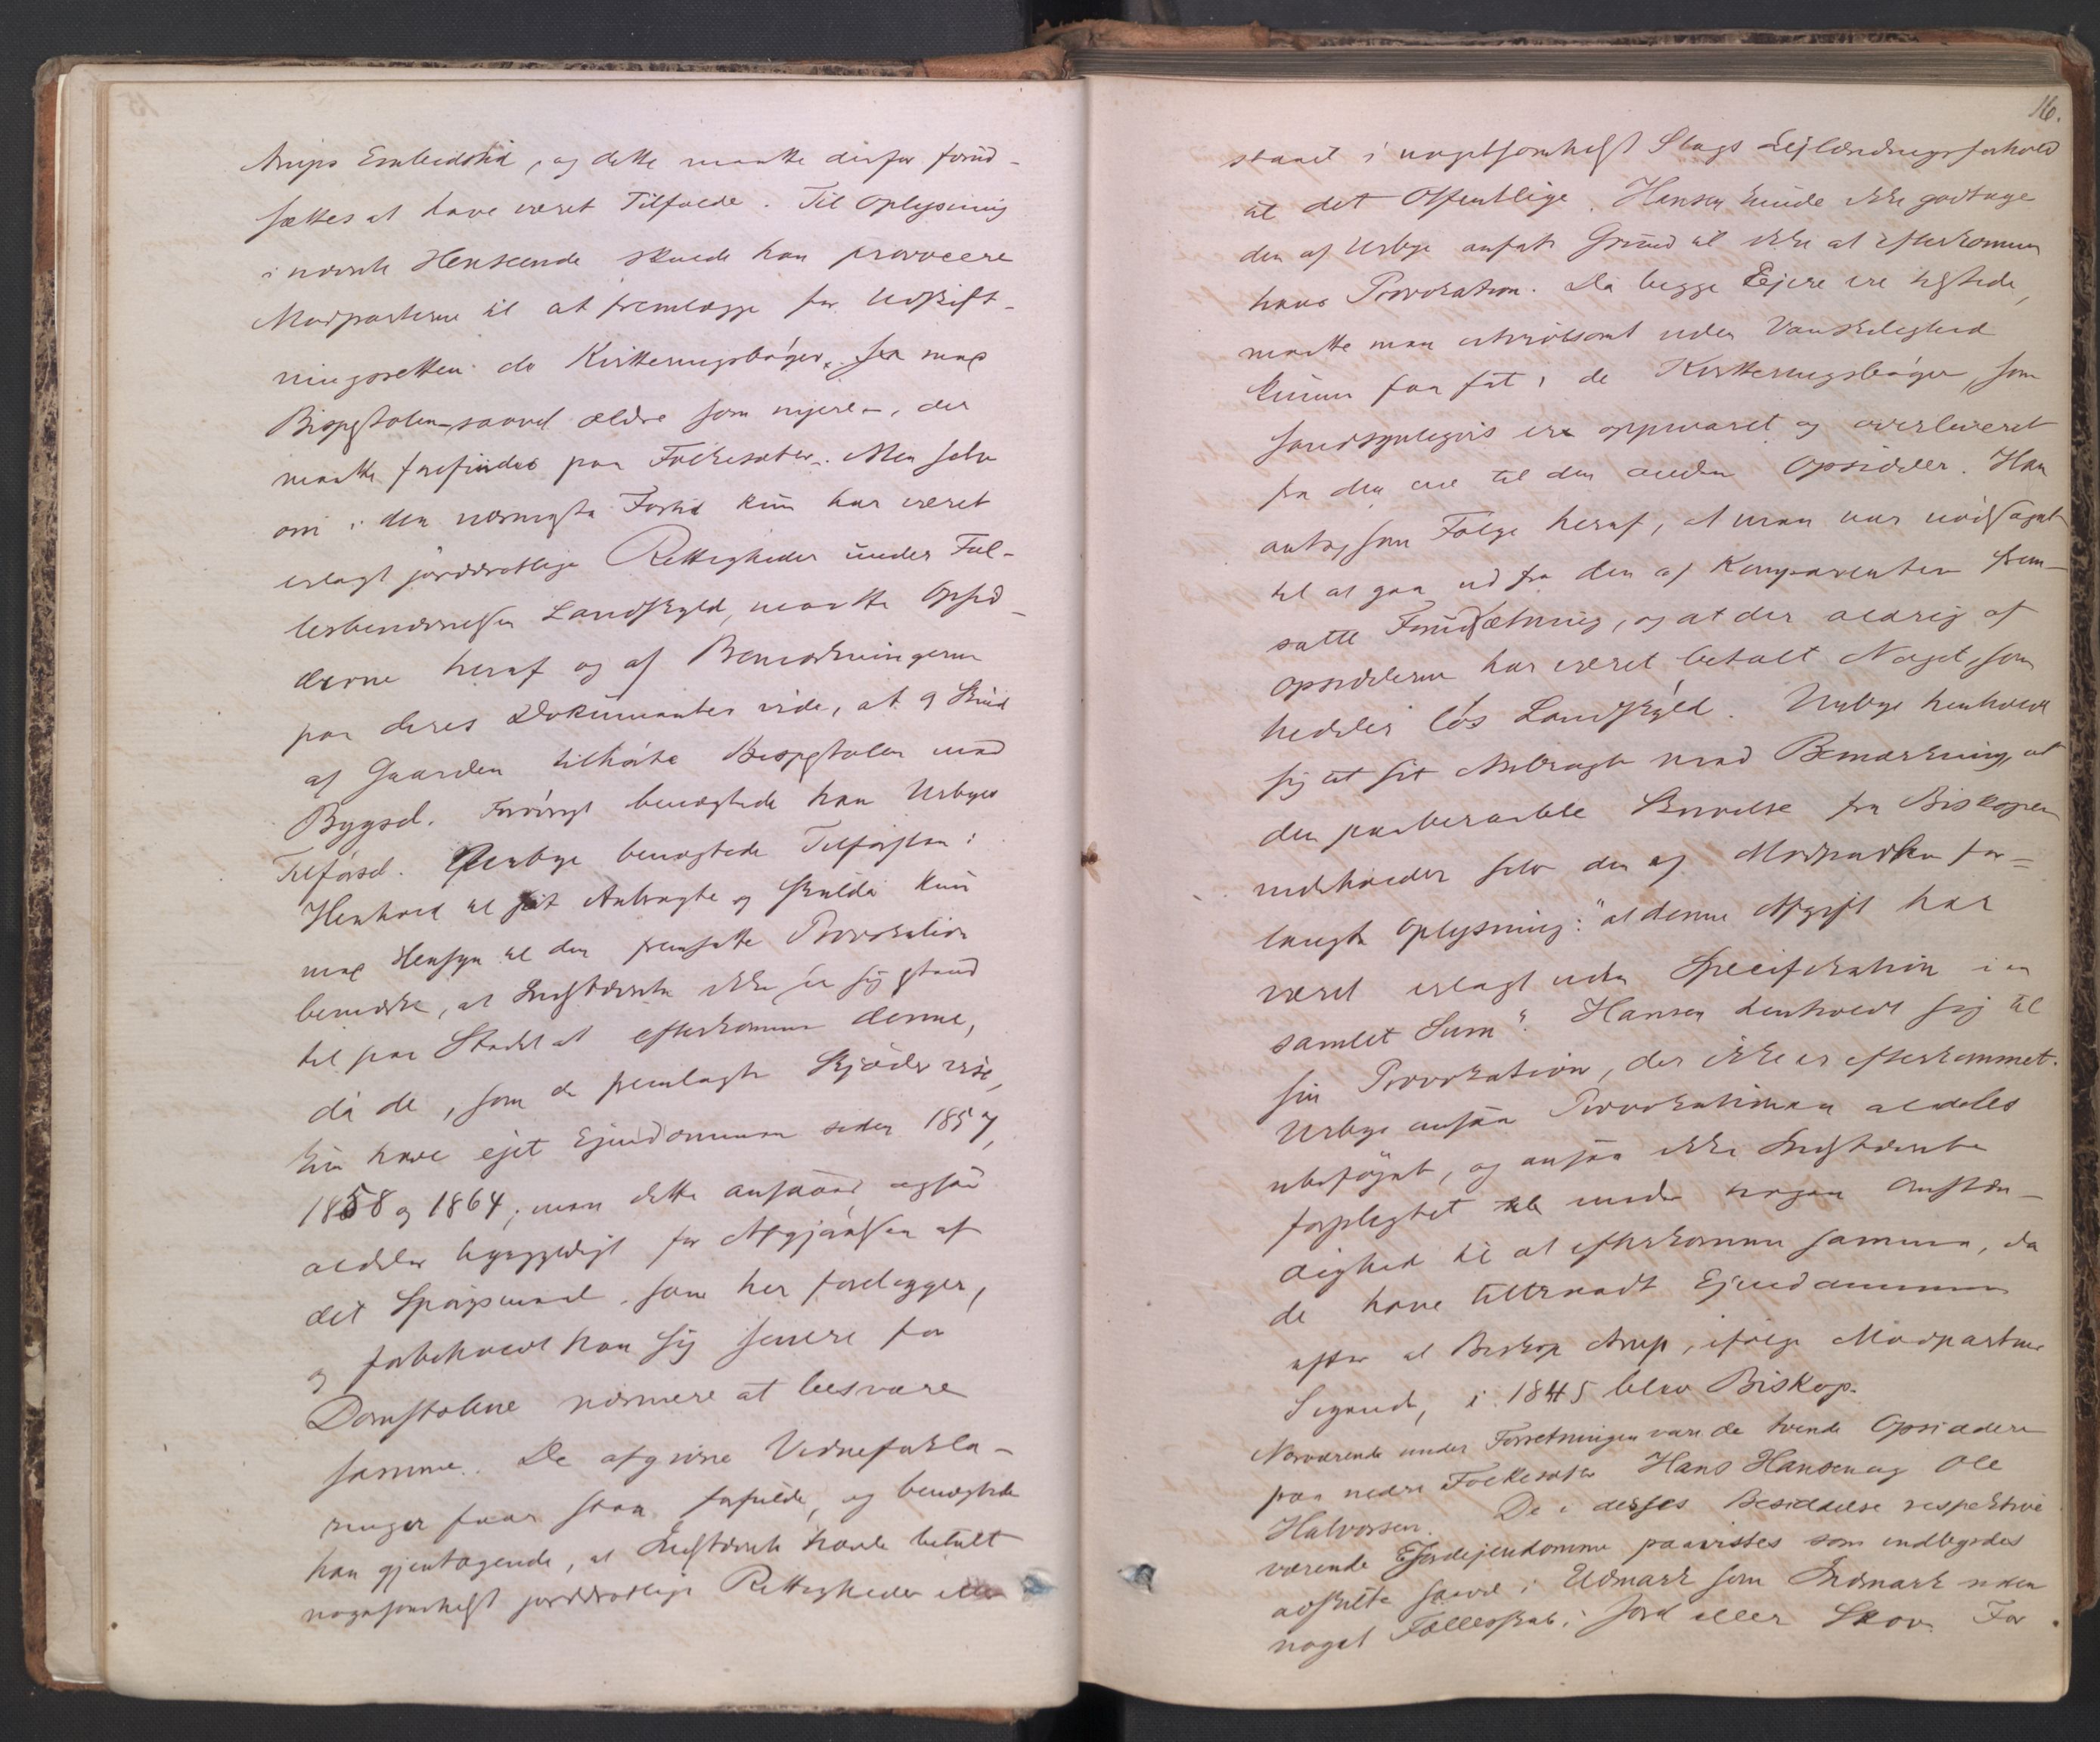 Arups Embedstid, og dette maatte derfor forud-
sættes at have været Tilfælde. Til Oplysning
i nævnte Henseende skulde han provocere
Modparterne til at fremlægge for Udskift-
ningsretten de Kvitteringsbøger fra
Bispestolen saavel ældre som nyere, der
maatte forefindes paa Folkesæter. Men selv
om i den nærmeste Fortid kun har været
erlagt jorddrotlige Rettigheder under Fæl-
lesbenævnelsen Landskyld, maatte Opsid-
derne heraf og af Bemærkningerne
paa deres Dokumenter vide, at 9 Skind
af Gaarden tilhørte Bispestolen med
Bygsel. Forøvrigt benægtede han Urbyes
Tilførsel. Urbye benægtede Tilførslen i
Henhold til sit Anbragte og skulde kun
med Hensyn til den fremsatte Provokation
bemærke, at Indstævnte ikke er sig istand
til paa Stedet at efterkomme denne,
da de, som de fremlagte Skjøder vise,
kun have ejet Ejendommen siden 1857,
1858 og 1864; men dette ansaaes ogsaa
aldeles ligegyldigt for Afgjørelsen af
det Spørgsmaal, som her foreligger,
og forbeholdt han sig senere for
Domstolene nærmere at besvare
samme. De afgivne Vidneforkla-
ringer faar staa forfulde, og benægtede
han gjentagende, at Indstævnte havde betalt
nogensomhelst jorddrotlige Rettigheder eller
16.
staaet i nogetsomhelst Slags Lejlændingsforhold
til det Offentlige. Hansen kunde ikke godtage
den af Urbye anførte Grund til ikke at efterkomme
hans Provokation. Da begge Ejere ere tilstede,
maatte man utvivlsomt uden Vanskelighed
kunne faa fat i de Kvitteringsbøger, som
sandsynligvis ere oppvaret og overleveret
fra den ene til den anden Opsidder. Han
antog som Følge heraf, at man var nødsaget
til at gaa ud fra den af Komparenten frem-
satte Forudsætning, og at der aldrig af
Opsidderne har været betalt Noget, som
hedder løs Landskyld. Urbye henholdt
sig til sit Anbragte med Bemærkning, at
den paaberaabte Skrivelse fra Biskopen
indeholder selv den af Modparten for-
langte Oplysning: "at denne Afgift har
været erlagt uden Specifikation i en
samlet Sum". Hansen henholdt sig til
sin Provokation, der ikke er efterkommet.
Urbye ansaa Provokationen aldeles
ubeføjet, og ansaa ikke Indstævnte
forpligtet til under nogen Omstæn-
dighed til at efterkomme samme, da
de have tiltraadt Ejendommen
efter at Biskop Arup, ifølge Modpartens
Sigende, i 1845 blev Biskop.
Nærværende under Forretningen vare de tvende Opsiddere
paa nedre Folkesæter Hans Hansen og Ole
Halvorsen. De i disses Besiddelse respektive
værende Jordejendomme paavistes som indbyrdes
adskilte saavel i Udmark som Indmark uden
noget Fællesskab i Jord eller Skov. For